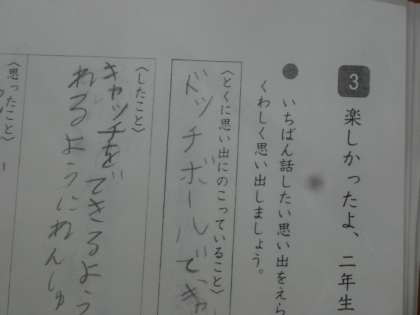 3 楽しかったよ、二年生
● いちばん話したい思い出をえら
くわしく思い出しましょう。
〈とくに思い出にのこっていること〉
ドッチボールで、キャ
〈したこと〉
キャッチをできるよう
れるようにれんしゅ
〈思ったこと〉